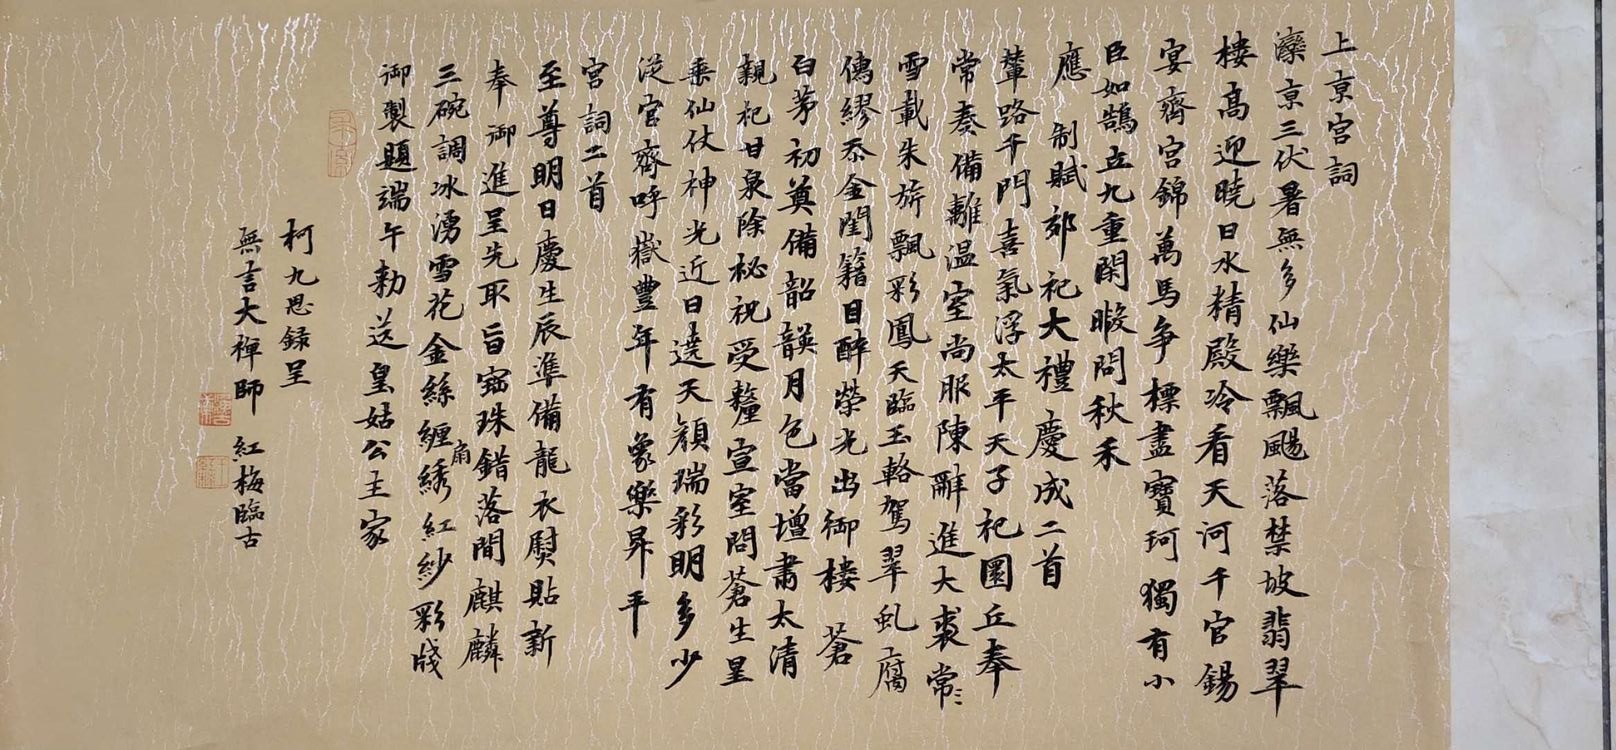 上京宮詞
灤京三伏暑無多仙樂飄颺落禁坡翡翠
樓髙迎曉日水精殿冷看天河千官錫
宴齊宮錦萬馬争標盡寶珂獨有小
臣如鵠立九重閑暇問秋禾
應制賦郊祀大禮慶成二首
輦路千門喜氣浮太平天子祀圜丘奉
常奏備離温室尚服陳辭進大裘常〻
雪載朱旂飄彩鳳天臨玉輅駕翠虬腐
儒繆忝金閨籍目醉榮光出御樓 蒼
白茅初奠備韶韺月色當壇肅太清
親祀甘泉除秘祝受釐宣室問蒼生星
乘仙仗神光近日遶天顔瑞彩明多少
從官齊呼嶽豐年有象樂昇平
宮詞二首
至尊明日慶生辰準備龍衣熨貼新
奉御進呈先取旨寶珠錯落間麒麟
三碗調冰湧雪花金絲纏扇綉紅紗彩牋
御製題端午勅送皇姑公主家
柯九思録呈
無言大禪師 紅梅臨古